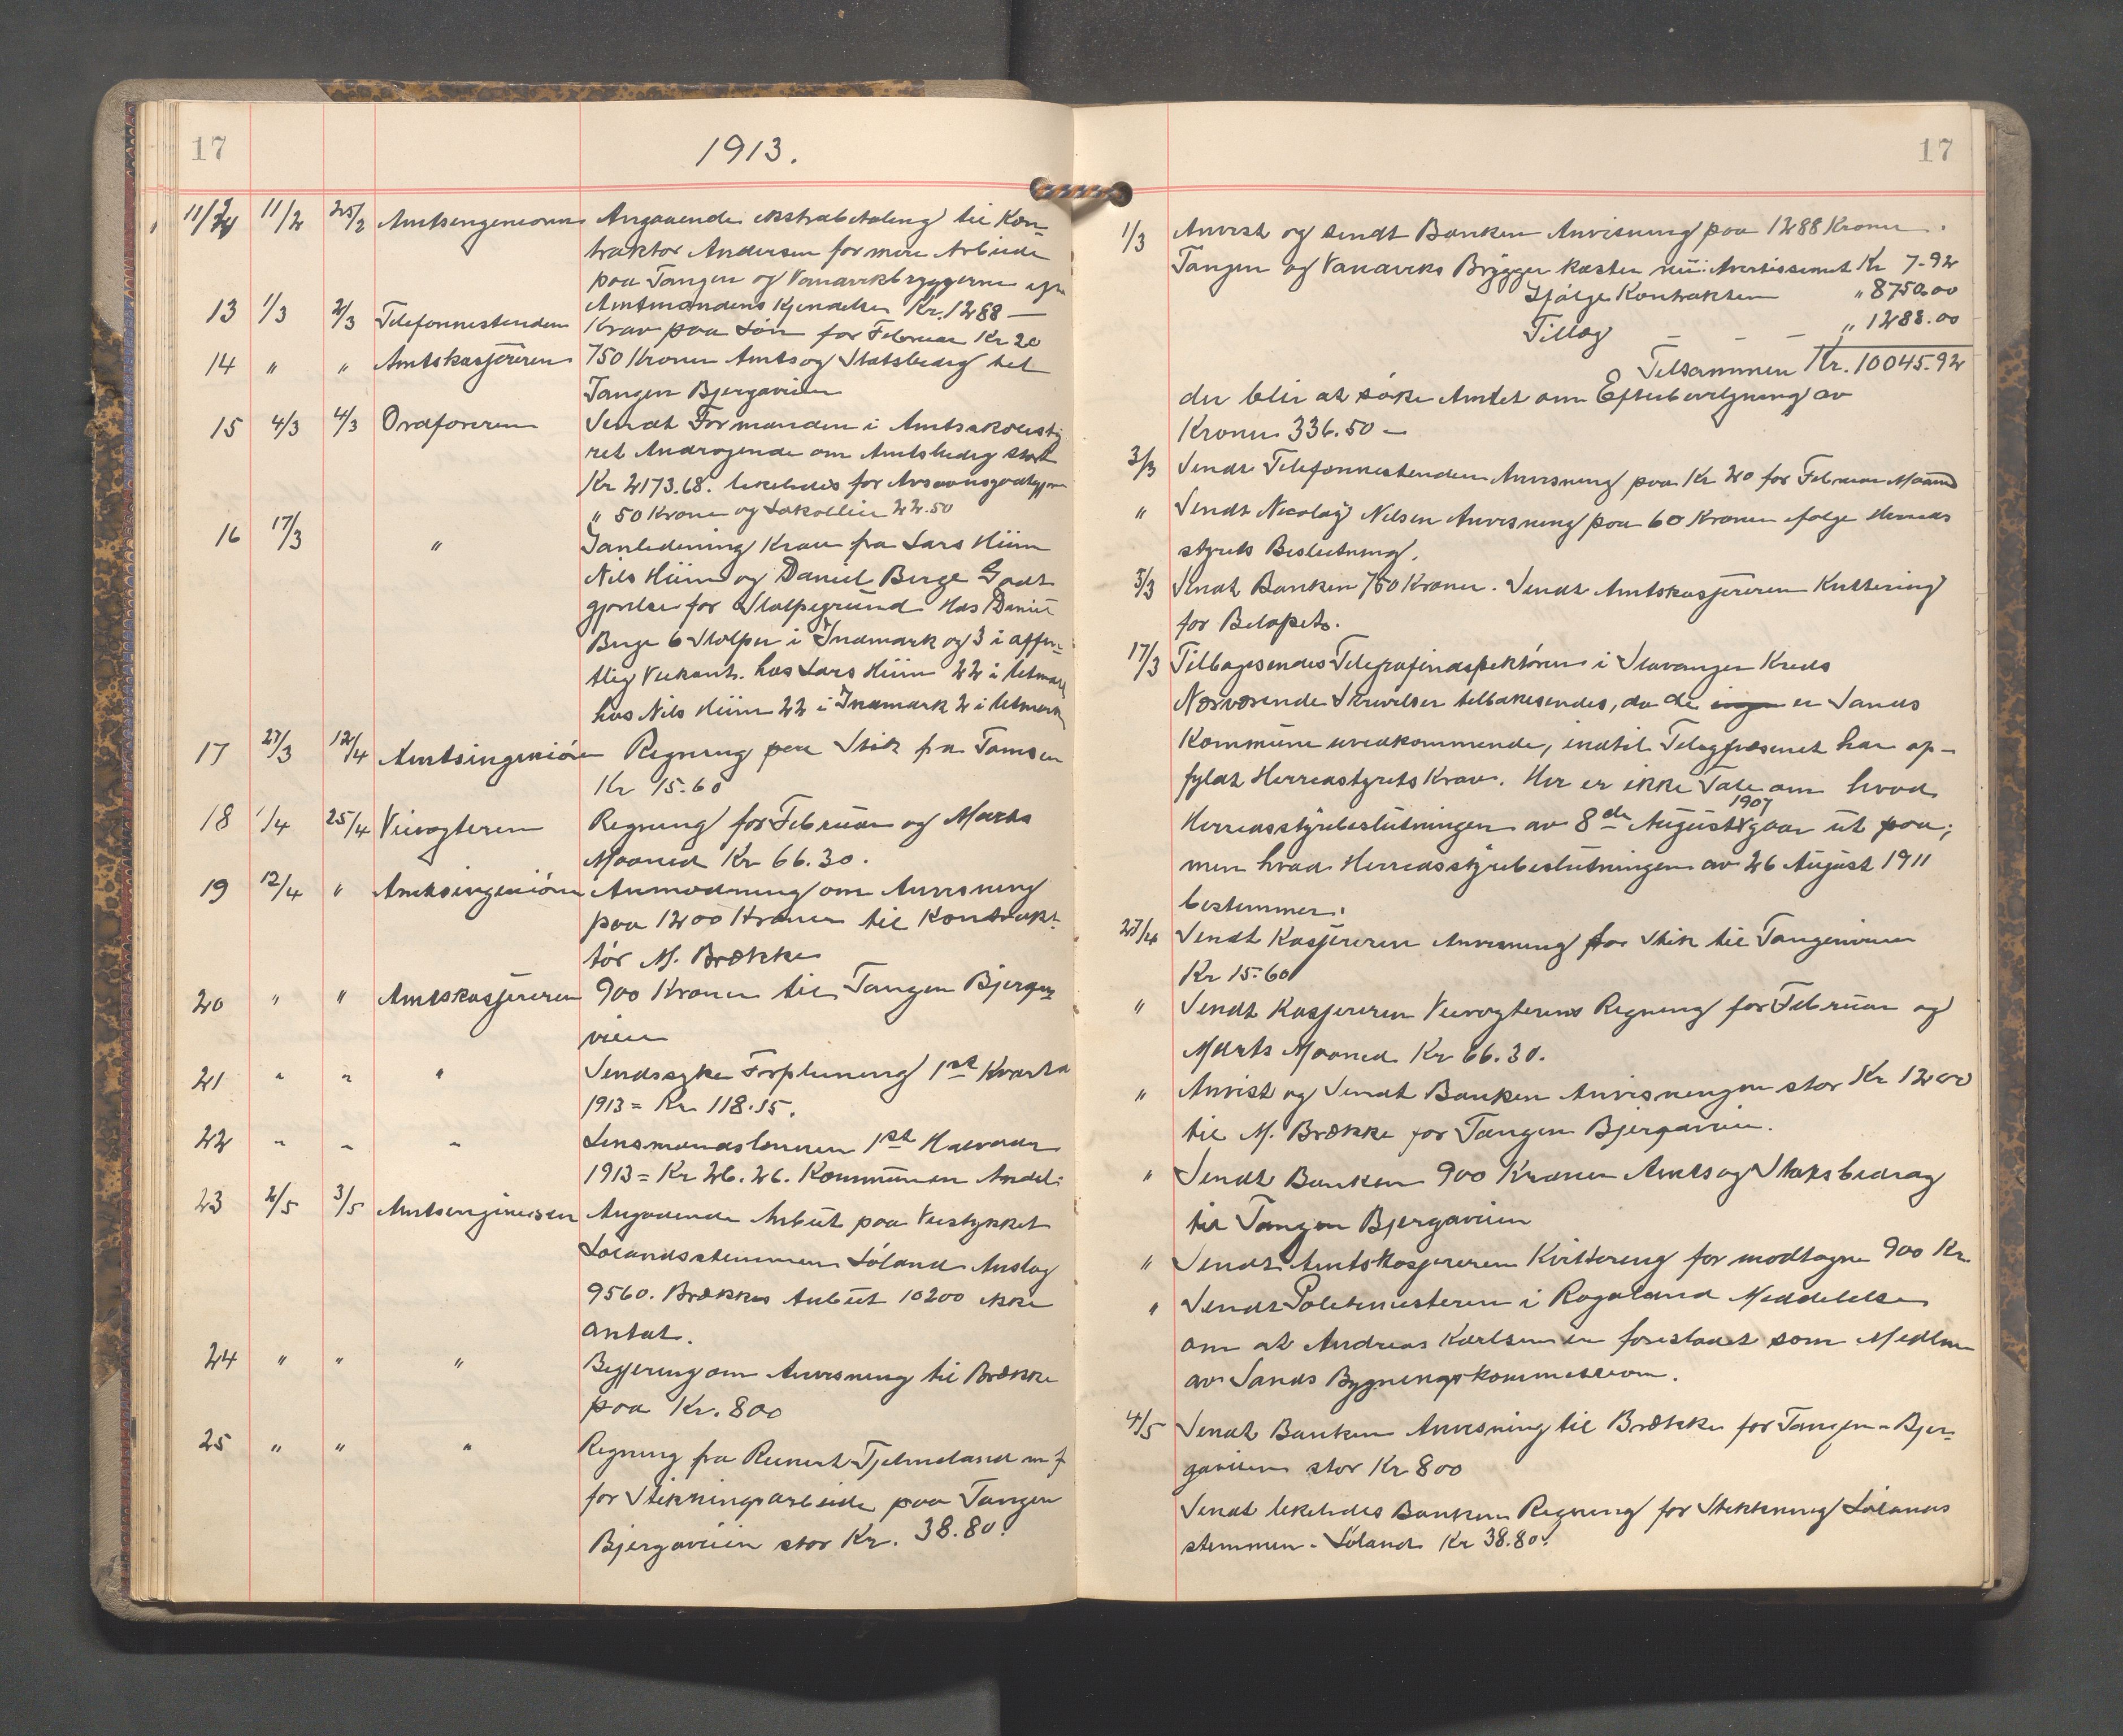 17
1913.
11/2 11/2 25/2 Amtsingeniøren Angaaende ekstrabetaling til Kon-
traktør Andersen for mere Arbeide
paa Tangen og Vanavikbryggerne efter
Amtmandens Kjendelse Kr. 1288 —
13 1/3 2/3 Telefonnestenden Krav paa Løn for Februar Kr 20
14 " " Amtskasjereren 750 Kroner Amts og Statsbidrag til
Tangen Bjergaveien
15 4/3 4/3 Ordføreren Sendt Formanden i Amtsskolesty
ret Andragende om Amtsbidrag stort
Kr 2173.68. likeledes for Avsavnsgodtgjør
" 50 Kroner og Lokalleie 22.50
16 17/3 " Ianledning Krav fra Lars Hiim
Nils Hiim og Daniel Berge Godt
gjørelse for Stolpegrund Hos Daniel
Berge 6 Stolper i Indmark og 3 i offen-
tlig Veikant. hos Lars Hiim 22 i Utmark
hos Nils Hiim 22 i Indmark 2 i Utmark
17 27/3 12/4 Amtsingeniøren Regning per Stik fra Tomsen
Kr 15.60
18 1/4 25/4 Veivogteren Regning for Februar og Marts
Maaned Kr 66.30.
19 12/4 " Amtsingeniøren Anmodning om Anvisning
paa 1200 Kroner til Kontrakt
tør M. Brække
20 " " Amtskasjereren 900 Kroner til Tangen Bjerga
veien
21 " " " Sindssyke Forpleining 1st Kvartal
1913 = Kr 118.15.
22 " " " Lensmandslønnen 1st Halvaar
1913 = Kr 26.26. Kommunen Andel.
23 2/5 3/5 Amtsingeniøren Angaaende Anbut paa Veistykket
Lølandsstemmen Løland Anslag
9560. Brækkes Anbut 10200 ikke
antat.
24 " " " Begjering om Anvisning til Brække
paa Kr. 800
25 " " " Regning fra Reinert Tjelmeland m f
for Stikningsarbeide paa Tangen
Bjergaveien stor Kr. 38.80.
17
1/3 Anvist og sendt Banken Anvisning paa 1288 Kroner.
Tangen og Vanaviks Brygger koster nu: Avertissement Kr 7-92
Ifølge Kontrakten " 8750.00
Tillæg — — — " 1288.00
Tilsammen Kr. 10045.92
der blir at søke Amtet om Efterbevilgning av
Kroner 336.50 —
3/3 Sendt Telefonnestenden Anvisning paa Kr 20 for Februar Maaned
" Sendt Nicolay Nilsen Anvisning paa 60 Kroner ifølge Herreds
styrets Beslutning.
5/3 Sendt Banken 750 Kroner. Sendt Amtskasjereren Kvittering
for Beløpet.
17/3 Tilbagesendes Telegrafinspektøren i Stavanger Kreds
Nærværende Skrivelser tilbakesendes, da de ingen er Sands
Kommune uvedkommende, indtil Telegfvæsenet har op-
fyldt Herredstyrets Krav. Her er ikke Tale om hvad
Herredsstyrebeslutningen av 8de August 1907 gaar ut paa;
men hvad Herredsstyrebeslutningen av 26 August 1911
bestemmer.
27/4 Sendt Kasjereren Anvisning for Stik til Tangenveien
Kr 15.60
" Sendt Kasjereren Veivogterens Regning for Februar og
Marts Maaned Kr 66.30.
" Anvist og Sendt Banken Anvisningen stor Kr 1200
til M. Brække for Tangen Bjergaveien.
" Sendt Banken 900 Kroner Amts og Statsbidrag
til Tangen Bjergaveien
" Sendt Amtskasjereren Kvittering for modtagne 900 Kr.
" Sendt Politimesteren i Rogaland Meddelelse
om at Andreas Karlsen er foreslaaet som Medlem
av Sands Bygningskommission.
4/5 Sendt Banken Anvisning til Brække for Tangen-Bjer-
gaveien stor Kr 800
Sendt likeledes Banken Regning for Stikkning Lølands
stemmen-Løland Kr 38.80.